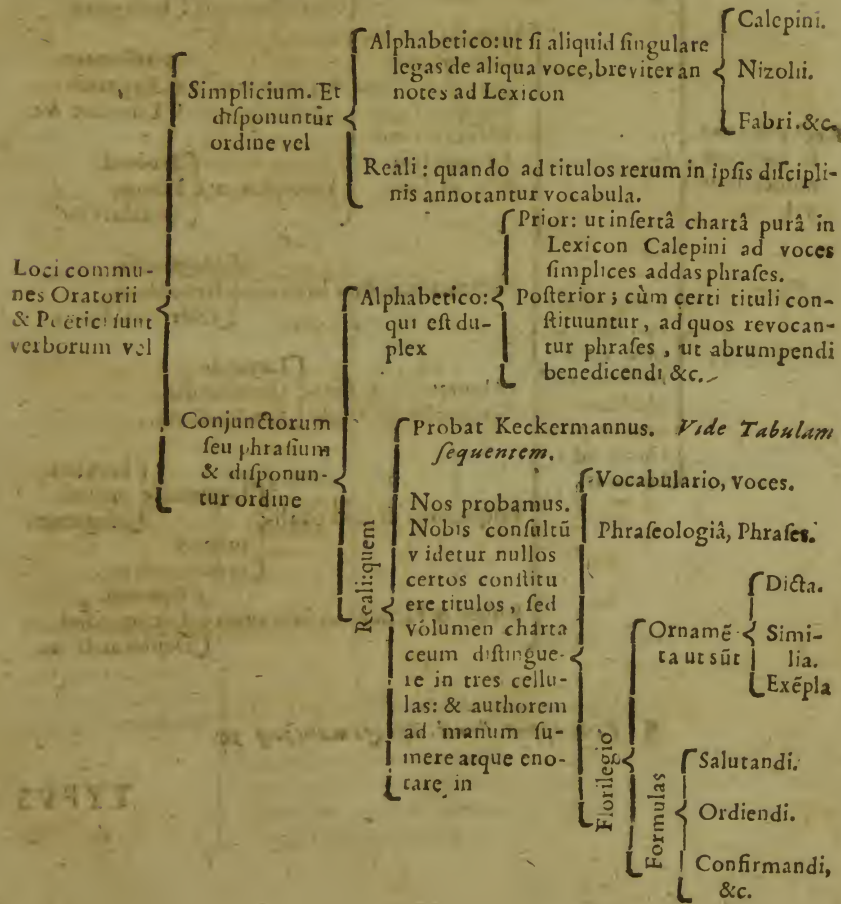 Loci commu-
nes Oratorii
& Pöetici sunt
verborum vel
Simplicium. Et
disponuntur
ordine vel
Alphabetico: ut si aliquid singulare
legas de aliqua voce, breviter an
notes ad Lexicon
Calepini.
Nizolii.
Fabri. &c.
Reali : quando ad titulos rerum in ipsis discipli-
nis annotantur vocabula.
Conjunctorum
seu phrasium
& disponun-
tur ordine
Alphabetico:
qui est du-
plex
Prior: ut insertâ chartâ purâ in
Lexicon Calepini ad voces
simplices addas phrases.
Posterior ; cùm certi tituli con-
stituuntur, ad quos revocan-
tur phrases , ut abrumpendi
benedicendi, &c.
Reali: quem
Probat Keckermannus. Vide Tabulam
sequentem.
Nos probamus.
Nobis consultũ
videtur nullos
certos constitu
ere titulos, sed
volumen charta
ceum distingue-
re in tres cellu-
las: & authorem
ad manum su-
mere atque eno-
tare in
Vocabulario, voces.
Phraseologiâ, Phrases.
Florilegio
Ornamẽ
ta ut sũt
Dicta.
Simi-
lia.
Exẽpla
Formulas
Salutandi.
Ordiendi.
Confirmandi,
&c.